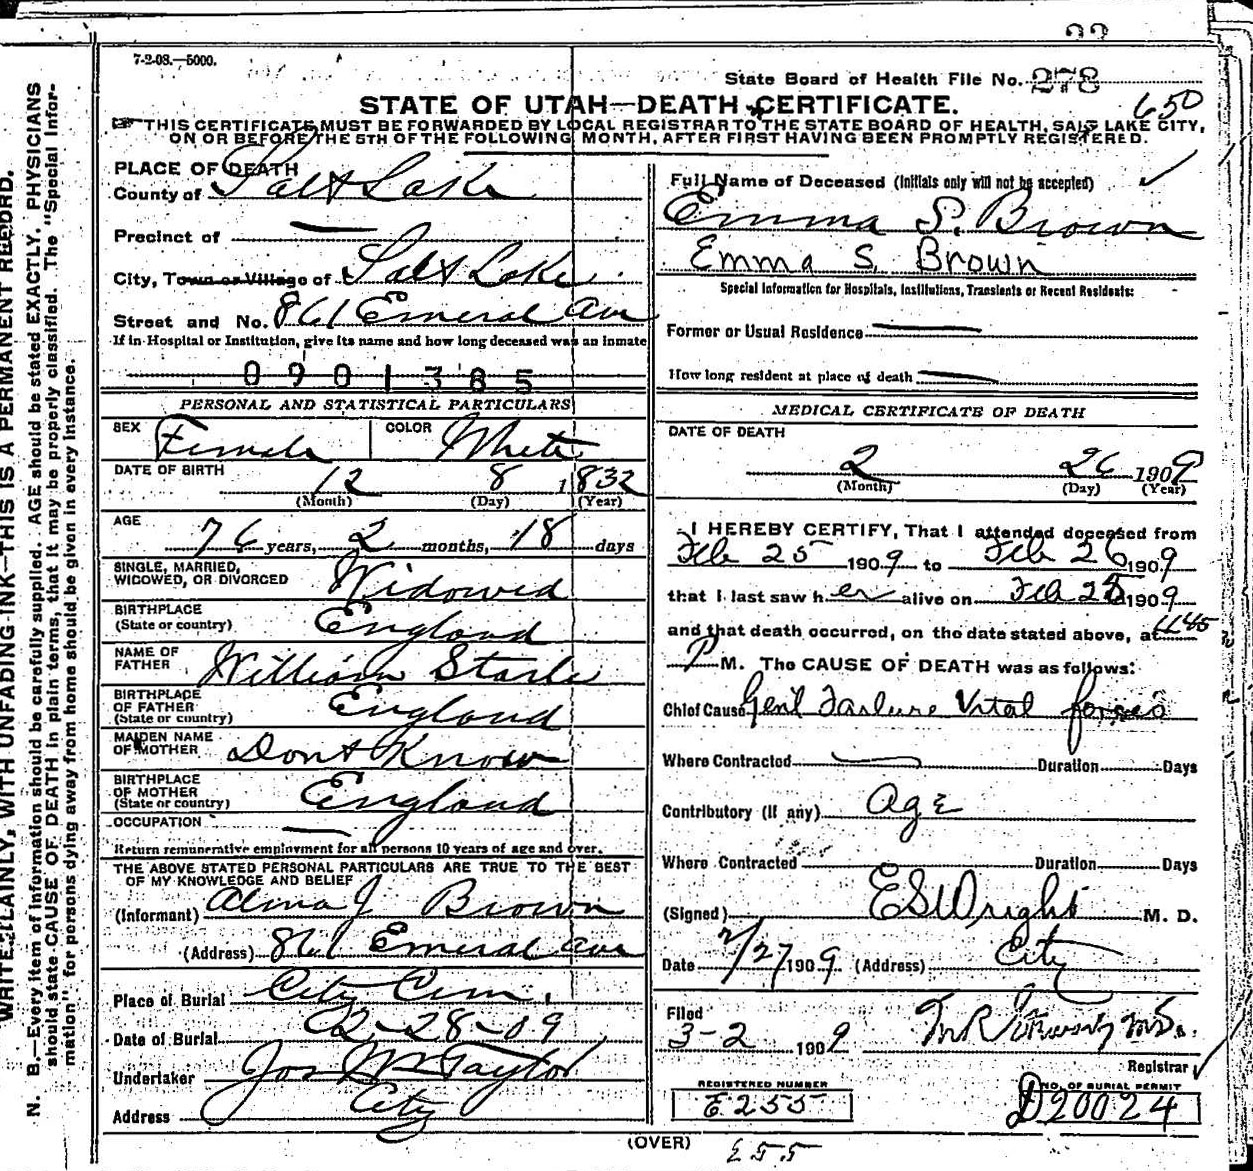 7-2-08.—5000.
State Board of Health File No. 278
650
STATE OF UTAH—DEATH CERTIFICATE.
THIS CERTIFICATE MUST BE FORWARDED BY LOCAL REGISTRAR TO THE STATE BOARD OF HEALTH, SALT LAKE CITY,
ON OR BEFORE THE 5TH OF THE FOLLOWING MONTH, AFTER FIRST HAVING BEEN PROMPTLY REGISTERED.
PLACE OF DEATH
County of Salt Lake
Precinct of —
City, Town or Village of Salt Lake
Street and No. 861 Emeral Ave
If in Hospital or Institution, give its name and how long deceased was an inmate
0901385
PERSONAL AND STATISTICAL PARTICULARS
SEX Female COLOR White
DATE OF BIRTH 12 8 1832
(Month) (Day) (Year)
AGE 76 years, 2 months, 18 days
SINGLE, MARRIED,
WIDOWED, OR DIVORCED Widowed
BIRTHPLACE
(State or country) England
NAME OF
FATHER William
BIRTHPLACE
OF FATHER
(State or country) England
MAIDEN NAME
OF MOTHER Dont Know
BIRTHPLACE
OF MOTHER
(State or country) England
OCCUPATION —
Return remunerative employment for all persons 10 years of age and over.
THE ABOVE STATED PERSONAL PARTICULARS ARE TRUE TO THE BEST
OF MY KNOWLEDGE AND BELIEF
(Informant) Alma J Brown
(Address) 861 Emeral Ave
Place of Burial City Cem.
Date of Burial 02-28-09
Undertaker Jos Wm Taylor
Address City
Full Name of Deceased (Initials only will not be accepted)
Emma S. Brown
Emma S. Brown
Special Information for Hospitals, Institutions, Transients or Recent Residents:
Former or Usual Residence —
How long resident at place of death —
MEDICAL CERTIFICATE OF DEATH
DATE OF DEATH
2 26 1909
(Month) (Day) (Year)
I HEREBY CERTIFY, That I attended deceased from
Feb 25 1909 to Feb 26 1909
that I last saw her alive on Feb 1909
and that death occurred, on the date stated above, at 1145
P M. The CAUSE OF DEATH was as follows:
Chief Cause Gen'l Failure Vital forces
Where Contracted — Duration Days
Contributory (if any) Age
Where Contracted Duration Days
(Signed) E S Wright M. D.
Date 2/27 1909 (Address) City
Filed
3-2 1909
Registrar
REGISTERED NUMBER
E255
NO. OF BURIAL PERMIT
D20024
(OVER)
WRITE PLAINLY, WITH UNFADING INK—THIS IS A PERMANENT RECORD.
N. B.—Every item of information should be carefully supplied. AGE should be stated EXACTLY. PHYSICIANS
should state CAUSE OF DEATH in plain terms, that it may be properly classified. The "Special Infor-
mation" for persons dying away from home should be given in every instance.